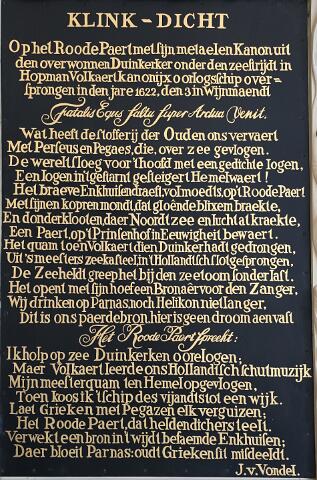 KLINK-DICHT
Op het Roode Paert met sijn metaelen Kanon uit
den overwonnen Duinkerker onder den zeestrijdt in
Hopman Volkaert kanonijx oorlogsschip over=
sprongen in den jare 1622, den 3 in Wijnmaendt
Fatalis Equs saltu super Ardua Venit.
Wat heeft de stofferij der Ouden ons vervaert
Met Perseus en Pegaes, die, over zee gevlogen.
De werelt sloeg voor 't hoofd met een gedichte logen,
Een logen in 't gestarnt gesteiget Hemelwaert!
Het braeve Enkhuisen draeft, vol moedts, op 't Roode Paert
Met sijnen kopren mondt, dat gloênde blixem braekte,
En donderklooten, daer Noordtzee en lucht at kraekte,
Een Paert, op 't Prinsenhof in Eeuwigheit bewaert.
Het quam toen Volkaert dien Duinker hadt gedrongen,
Uit 's meesters zeekasteel, in 't Hollandtsch slot gesprongen,
De Zeeheldt greep het bij den zeetoom sonder last.
Het opent met sijn hoef een Bronaêr voor den Zanger.
Wij drinken op Parnas, noch Helikon niet langer,
Dit is ons paerdebron, hier is geen droom aen vast
Het Roode Paert spreekt:
Ik holp op zee Duinkerken oorelogen;
Maer Volkaert leerde ons Hollandtsch schutmuzijk
Mijn meester quam ten Hemel opgevlogen,
Toen koos ik 't schip des vijandts tot een wijk.
Laet Grieken met Pegazen elk verguizen;
Het Roode Paert, dat heldendichters teelt.
Verwekt een bron in 't wijdt befaemde Enkhuisen;
Daer bloeit Parnas: oudt Grieken sit misdeeldt.
J.v.Vondel.